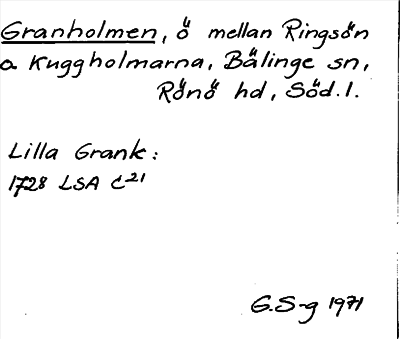 Granholmen, ö mellan Ringsön
o Kuggholmarna, Bälinge sn,
Rönö hd, Söd.l.
Lilla Grank:
1728 LSA C21
G.S-g 1971